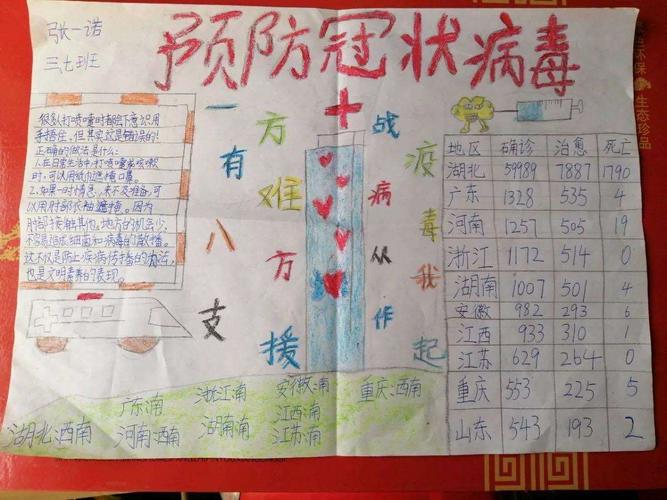 张一诺
三.七班
预防冠状病毒
很多人打喷嚏时都会下意识用
手捂住,但其实这是错误的!
正确的做法是什么:
1.在日常生活中打喷嚏或咳嗽
时,可以用纸巾遮掩口鼻。
2.如果一时情急,来不及准备,可
以用肘部衣袖遮掩。因为
肘部接触其他地方的机会少,
不容易造成细菌和病毒的散播。
这不仅是防止疾病传播的办法,
也是文明素养的表现。
一方有难
八方支援
战疫毒
病从我作起
地区 确诊 治愈 死亡
湖北 59989 7887 1790
广东 1328 535 4
河南 1257 505 19
浙江 1172 514 0
湖南 1007 501 4
安徽 982 293 6
江西 933 310 1
江苏 629 264 0
重庆 553 225 5
山东 543 193 2
湖北:酒南
广东:南
河南:酒南
浙江:南
湖南:南
安徽:南
江西:南
江苏:南
重庆:酒南
生态珍品